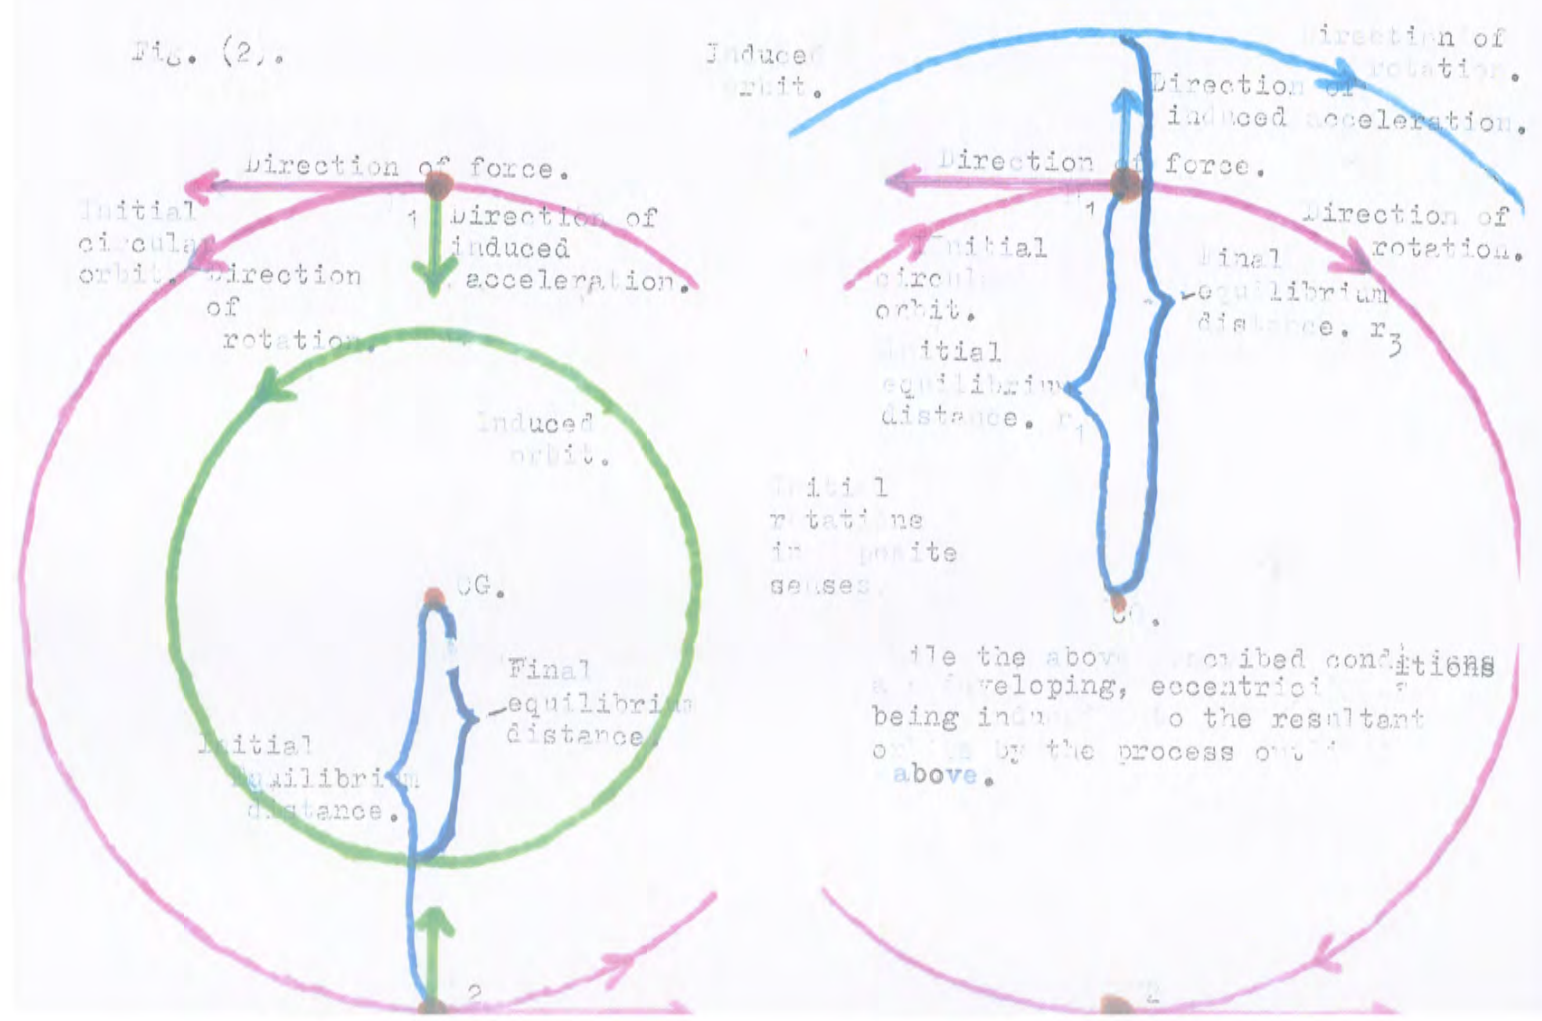 Fig. (2).
Direction of force.
Initial
circular
orbit.
1
Direction of
induced
acceleration.
Direction
of
rotation.
Induced
orbit.
CG.
Final
equilibrium
distance.
Initial
Equilibrium
distance.
2
Induced
orbit.
Direction of
rotation.
Direction of
induced acceleration.
Direction of force.
1
Direction of
rotation.
Initial
circular
orbit.
Final
equilibrium
distance. r3
Initial
equilibrium
distance. r1
Initial
rotations
in opposite
senses.
CG.
the above conditions
developing,
being to the resultant
by the process
above.
2